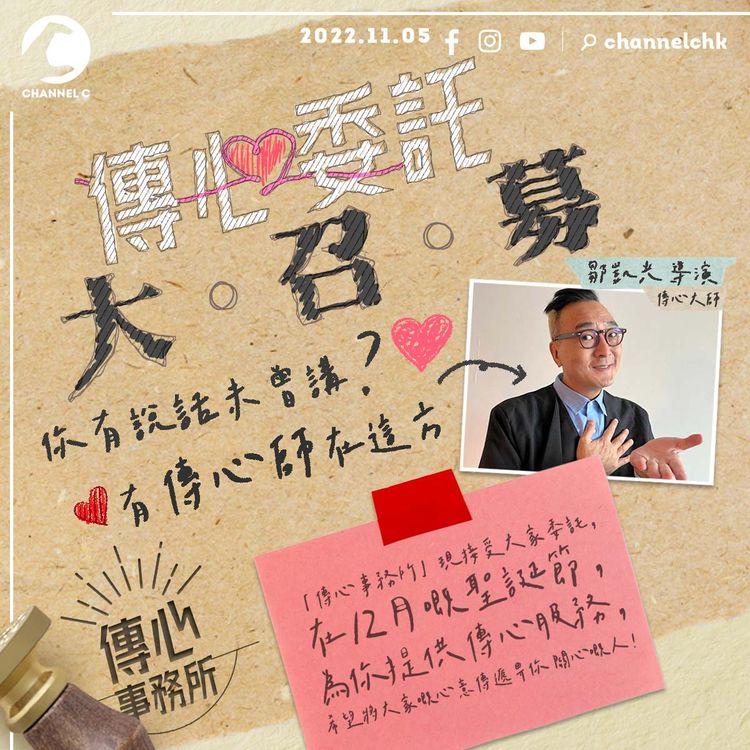 2022.11.05
channelchk
CHANNEL C
傳心委託
大・召・募
鄒凱光導演
傳心大師
你有說話未曾講？
有傳心師在這方
「傳心事務所」現接受大家委託，
在12月嘅聖誕節，
為你提供傳心服務，
希望將大家嘅心意傳遞畀你關心嘅人！
傳心
事務所